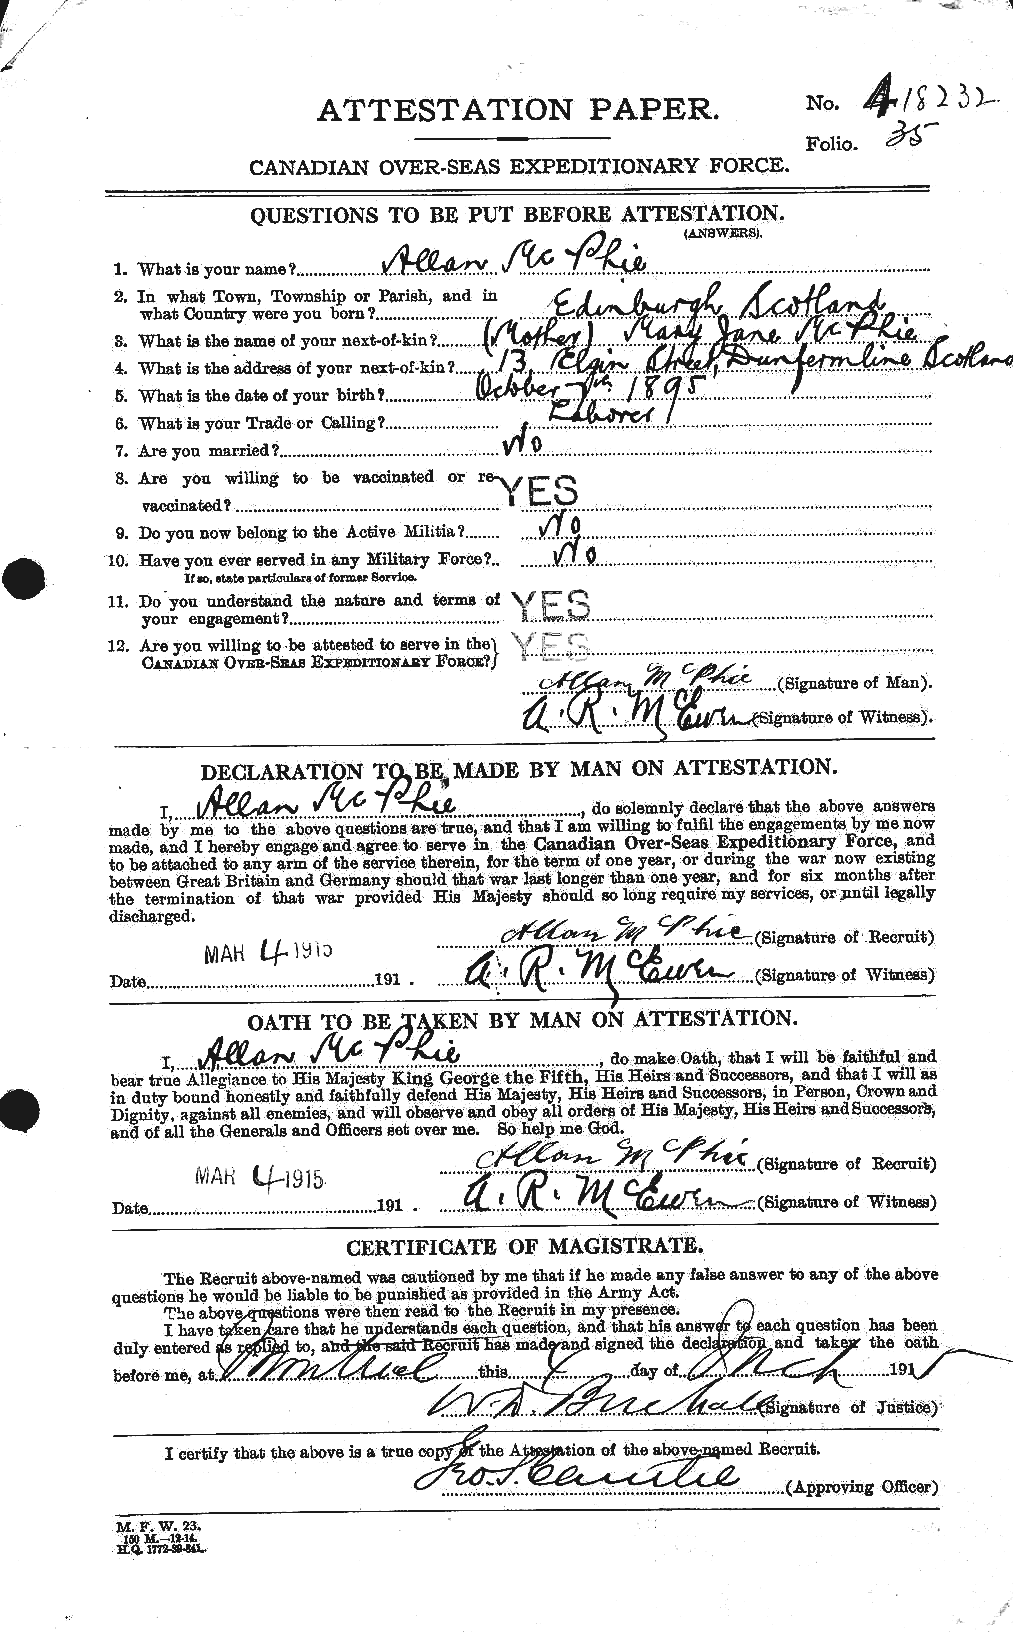 ATTESTATION PAPER.
No. 418232
Folio. 35
CANADIAN OVER-SEAS EXPEDITIONARY FORCE.
QUESTIONS TO BE PUT BEFORE ATTESTATION.
(ANSWERS).
1. What is your name? Allan McPhie
2. In what Town, Township or Parish, and in
what Country were you born? Edinburgh Scotland
3. What is the name of your next-of-kin? (Mother) Mary Jane McPhie
4. What is the address of your next-of-kin? 13, Elgin Street, Dunfermline Scotland
5. What is the date of your birth? October 7th 1895
6. What is your Trade or Calling? Laborer
7. Are you married? No
8. Are you willing to be vaccinated or re-
vaccinated? YES
9. Do you now belong to the Active Militia? No
10. Have you ever served in any Military Force? No
If so, state particulars of former Service.
11. Do you understand the nature and terms of
your engagement? YES
12. Are you willing to be attested to serve in the
CANADIAN OVER-SEAS EXPEDITIONARY FORCE? YES
Allan McPhie (Signature of Man).
A. R. McEwen (Signature of Witness).
DECLARATION TO BE MADE BY MAN ON ATTESTATION.
I, Allan McPhie, do solemnly declare that the above answers
made by me to the above questions are true, and that I am willing to fulfil the engagements by me now
made, and I hereby engage and agree to serve in the Canadian Over-Seas Expeditionary Force, and
to be attached to any arm of the service therein, for the term of one year, or during the war now existing
between Great Britain and Germany should that war last longer than one year, and for six months after
the termination of that war provided His Majesty should so long require my services, or until legally
discharged.
Allan McPhie (Signature of Recruit)
MAR 4 1915
Date 191 . A. R. McEwen (Signature of Witness)
OATH TO BE TAKEN BY MAN ON ATTESTATION.
I, Allan McPhie, do make Oath, that I will be faithful and
bear true Allegiance to His Majesty King George the Fifth, His Heirs and Successors, and that I will as
in duty bound honestly and faithfully defend His Majesty, His Heirs and Successors, in Person, Crown and
Dignity, against all enemies, and will observe and obey all orders of His Majesty, His Heirs and Successors,
and of all the Generals and Officers set over me. So help me God.
Allan McPhie (Signature of Recruit)
MAR 4 1915
Date 191 . A. R. McEwen (Signature of Witness)
CERTIFICATE OF MAGISTRATE.
The Recruit above-named was cautioned by me that if he made any false answer to any of the above
questions he would be liable to be punished as provided in the Army Act.
The above questions were then read to the Recruit in my presence.
I have taken care that he understands each question, and that his answer to each question has been
duly entered as replied to, and the said Recruit has made and signed the declaration and taken the oath
before me, at Montreal this 4 day of Mch 1915
(Signature of Justice)
I certify that the above is a true copy of the Attestation of the above-named Recruit.
Geo. S. Cantlie (Approving Officer)
M. F. W. 23.
150 M.—12-14.
H.Q. 1772-39-841.